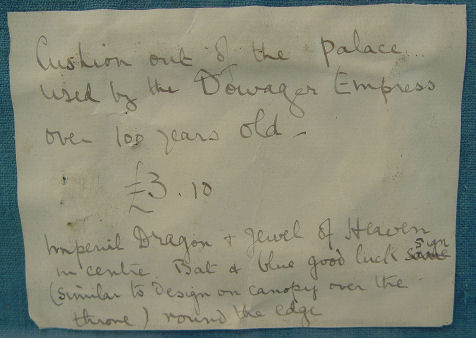 Cushion out of the palace
used by the Dowager Empress
over 100 years old -
£3.10
Imperial Dragon + Jewel of Heaven
in centre Bat & blue good luck sign
(similar to design on canopy over the
throne) round the edge